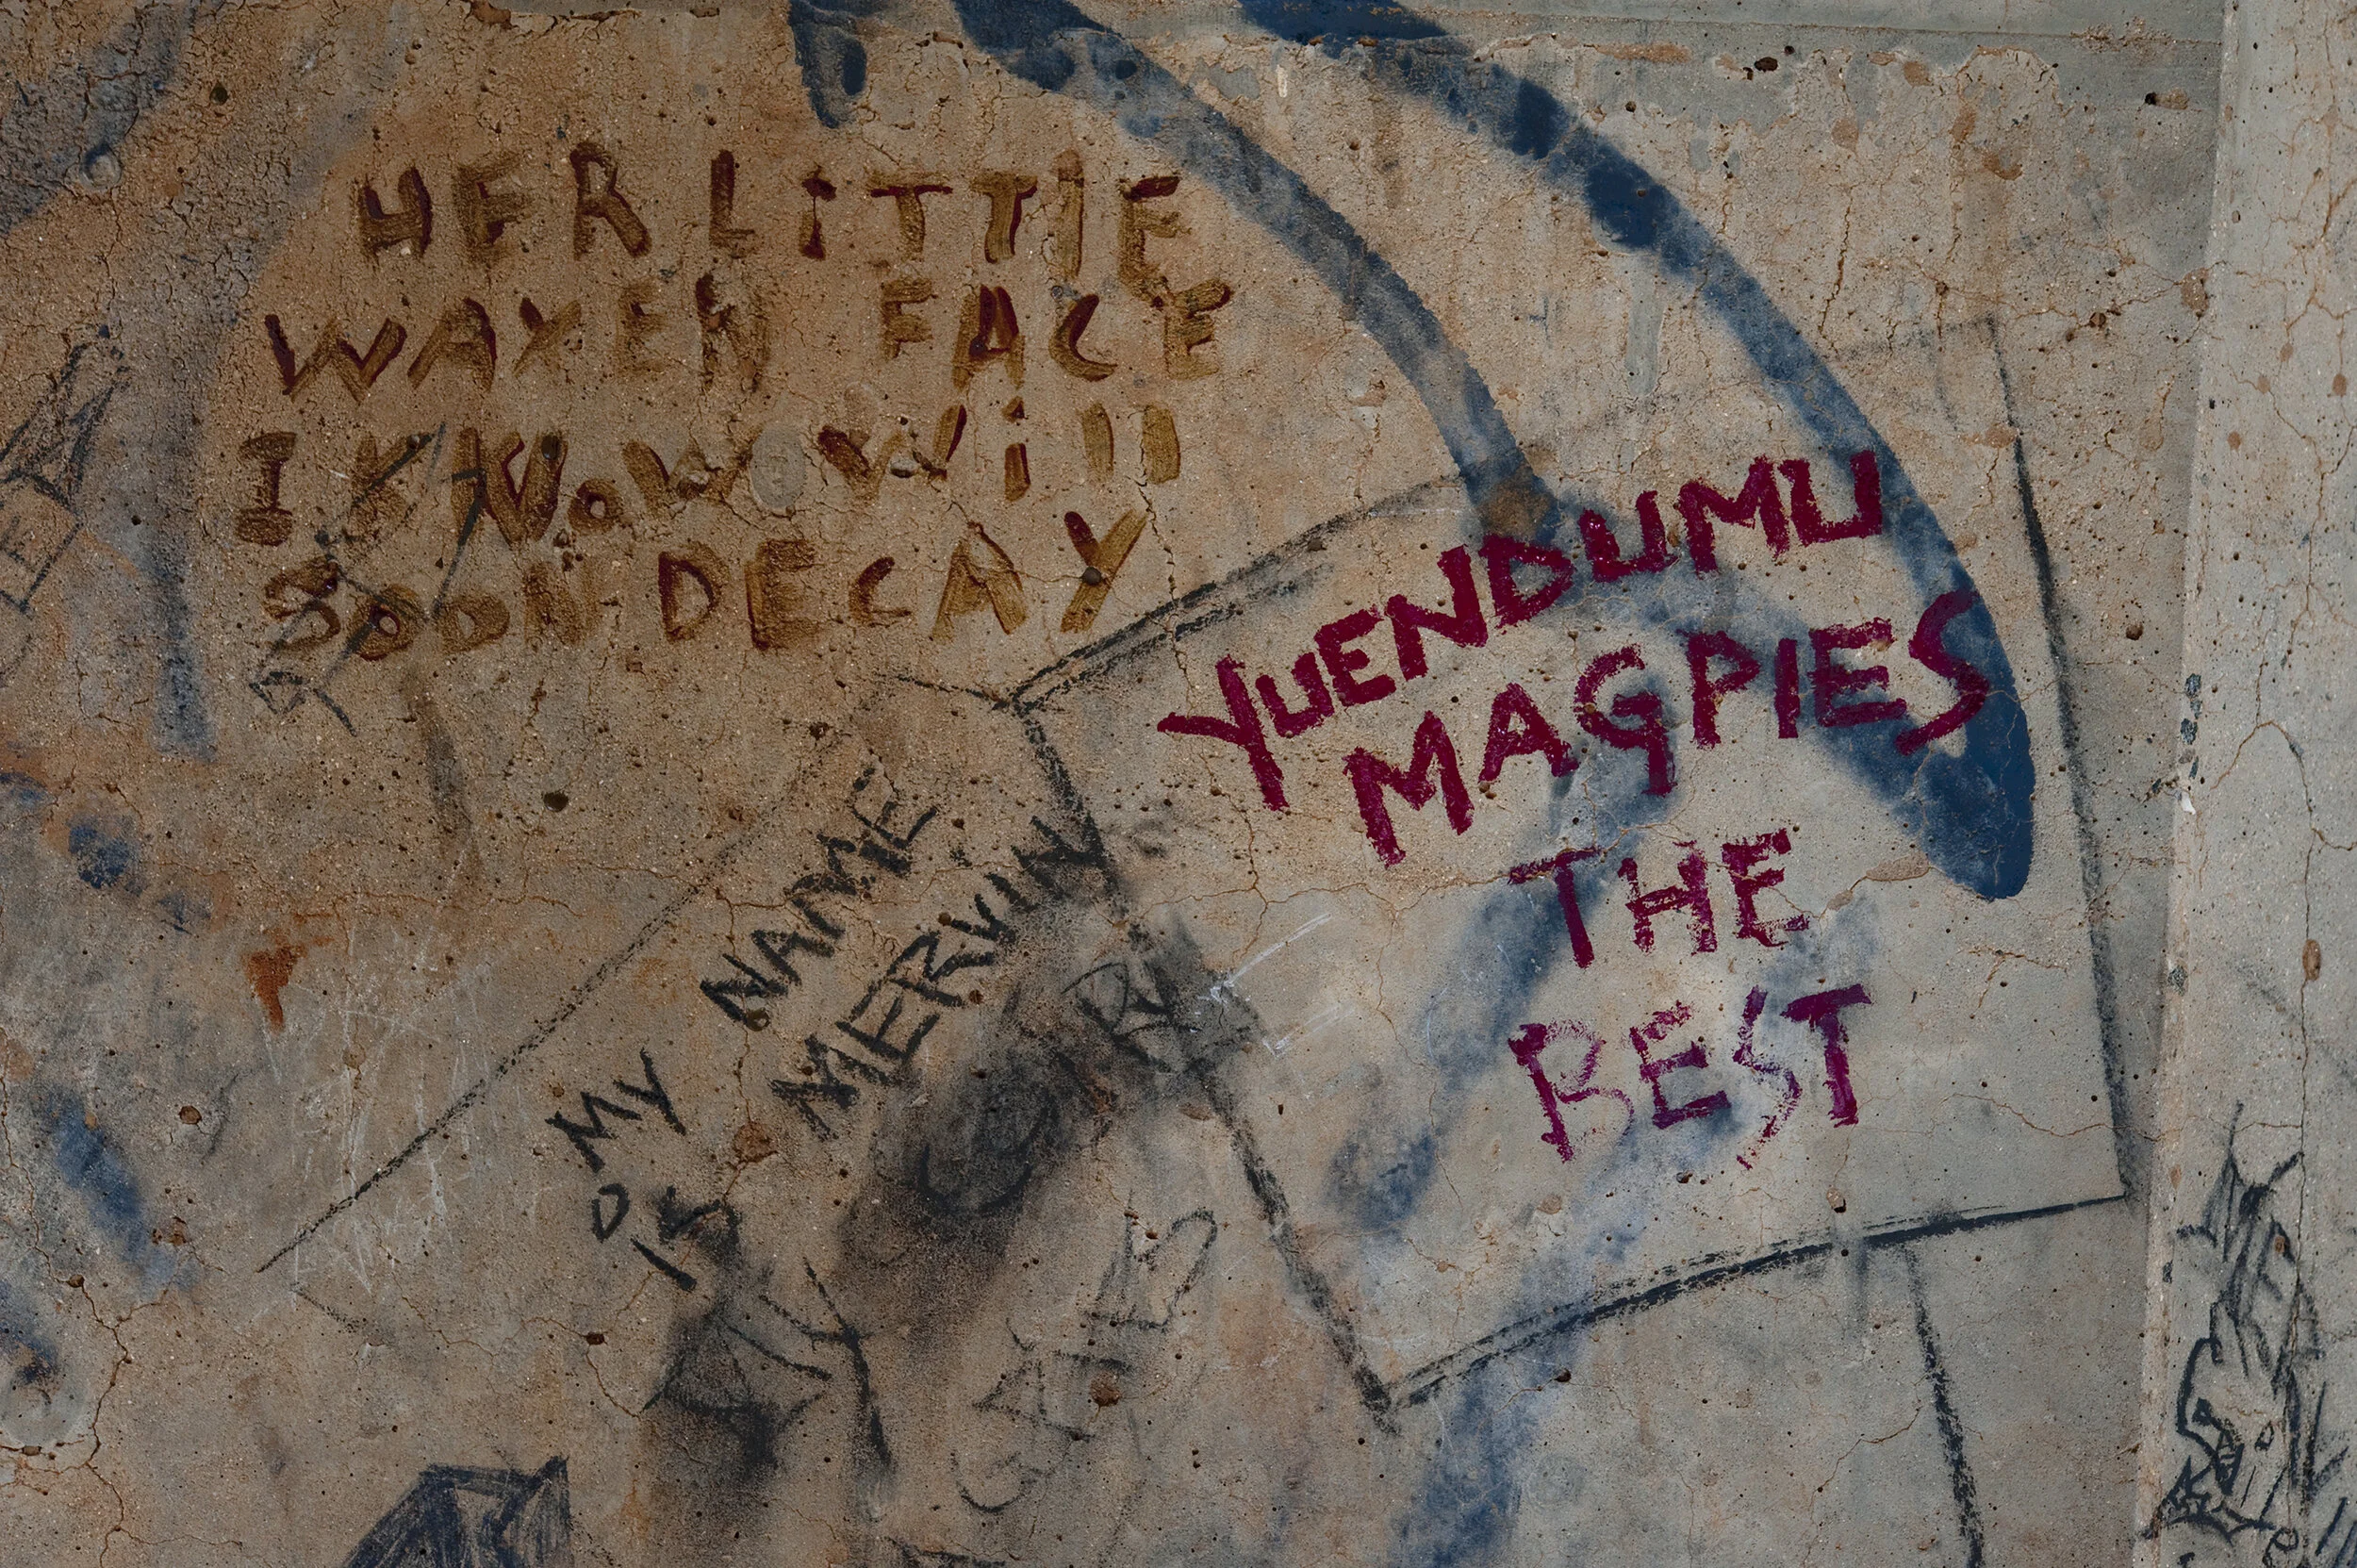 HER LiTTlE
WAXEN FACE
I KNoW Will
SOON DECAY
YUENDUMU
MAGPIES
THE
BEST
MY NAME
IS MERVIN